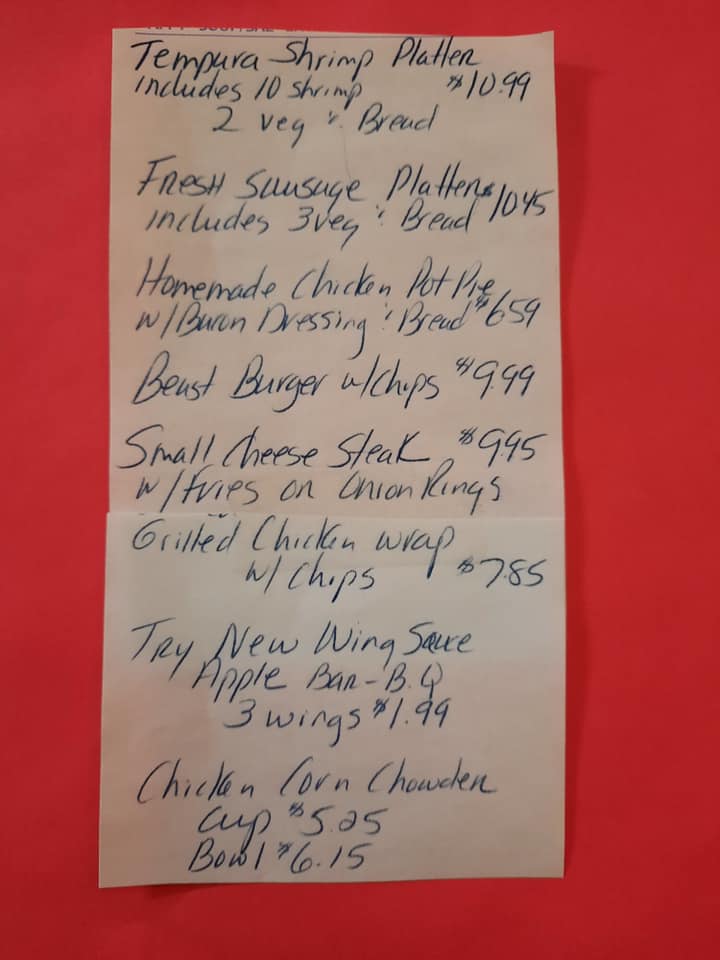 Tempura Shrimp Platter
includes 10 shrimp $10.99
2 veg & Bread
Fresh Sausage Platter $1045
includes 3veg & Bread
Homemade Chicken Pot Pie
w/ Dressing & Bread $659
Beast Burger w/chips $9.99
Small Cheese Steak $995
w/Fries or Onion Rings
Grilled Chicken wrap
w/ Chips $7.85
Try New Wing Sauce
Apple Bar-B.Q
3 wings $1.99
Chicken Corn Chowder
Cup $5.25
Bowl $6.15